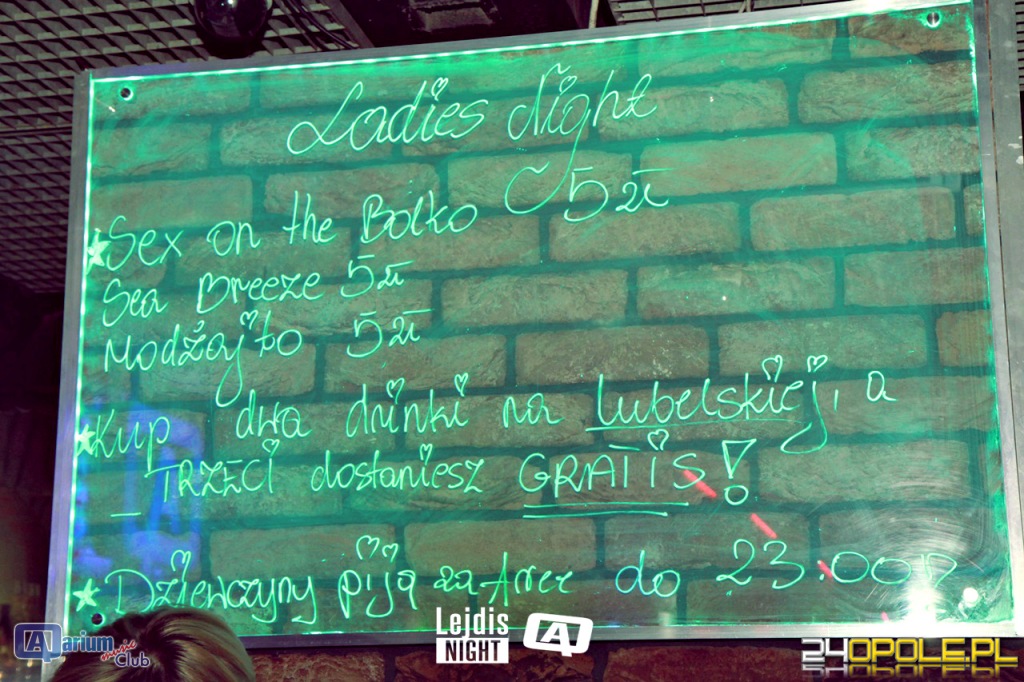 Ladies Night
Sex on the Bolko 5 zł
Sea Breeze 5 zł
Modżajto 5 zł
Kup dwa drinki na Lubelskiej, a
TRZECI dostaniesz GRATIS!
Dziewczyny piją za free do 23.00
Lejdis
NIGHT
Aqarium
music
Club
24OPOLE.PL